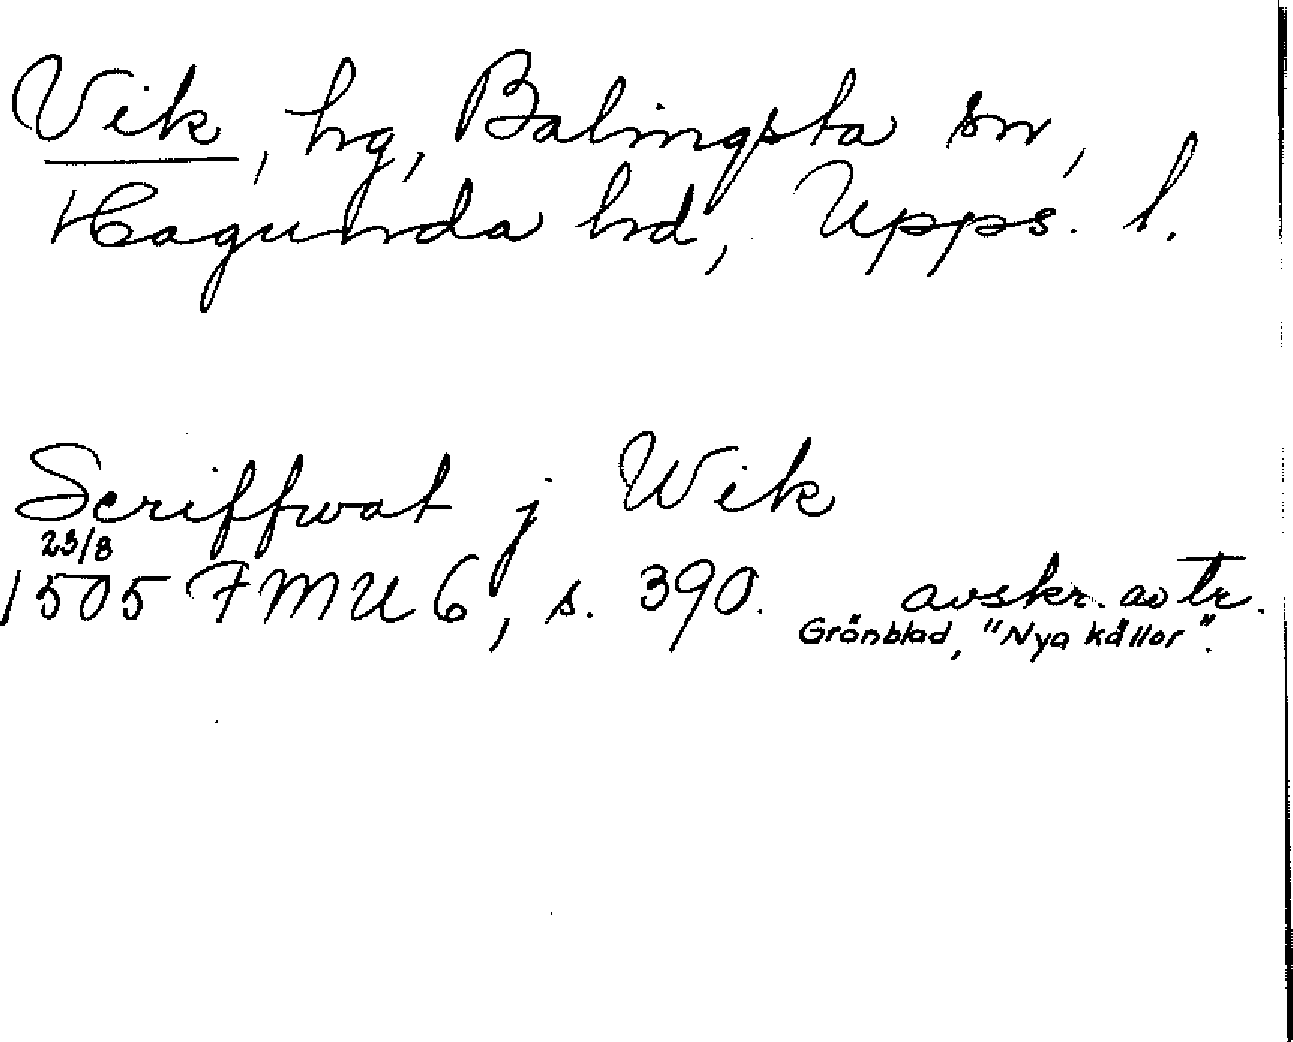 Vik, hg, Balingsta sn,
Hagunda hd, Upps. l.
Scriffwat j Wik
23/8
1505 FMU 6, s. 390. avskr. av tr.
Grönblad, "Nya källor".